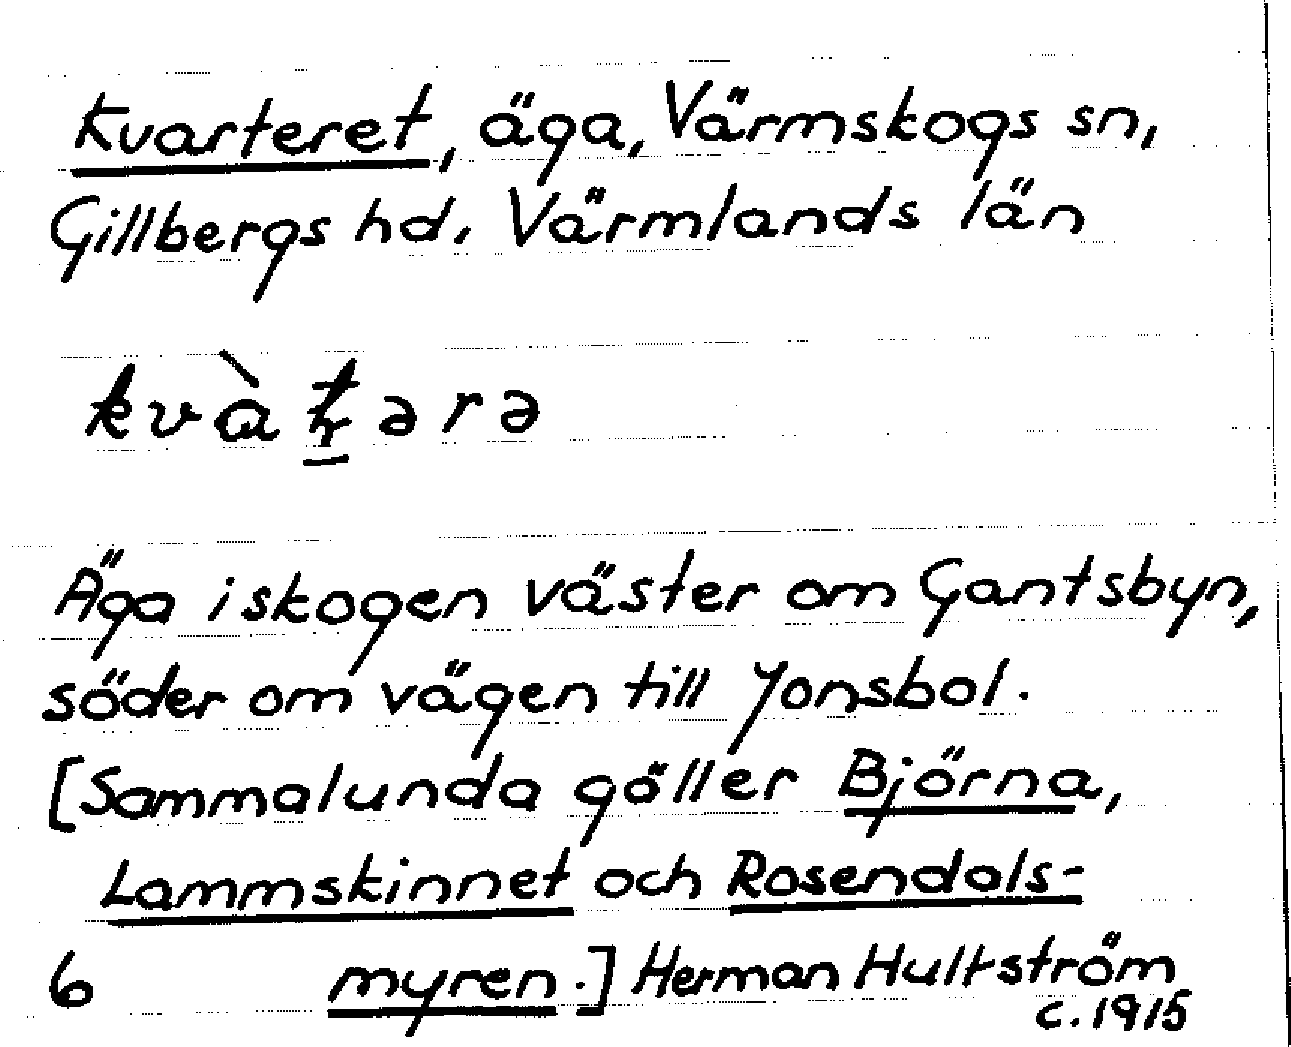 Kvarteret, äga, Värmskogs sn,
Gillbergs hd. Värmlands län
Äga i skogen väster om Gantsbyn,
söder om vägen till Jonsbol.
[Sammalunda gäller Björna,
Lammskinnet och Rosendals-
6 myren.] Herman Hultström
c. 1915